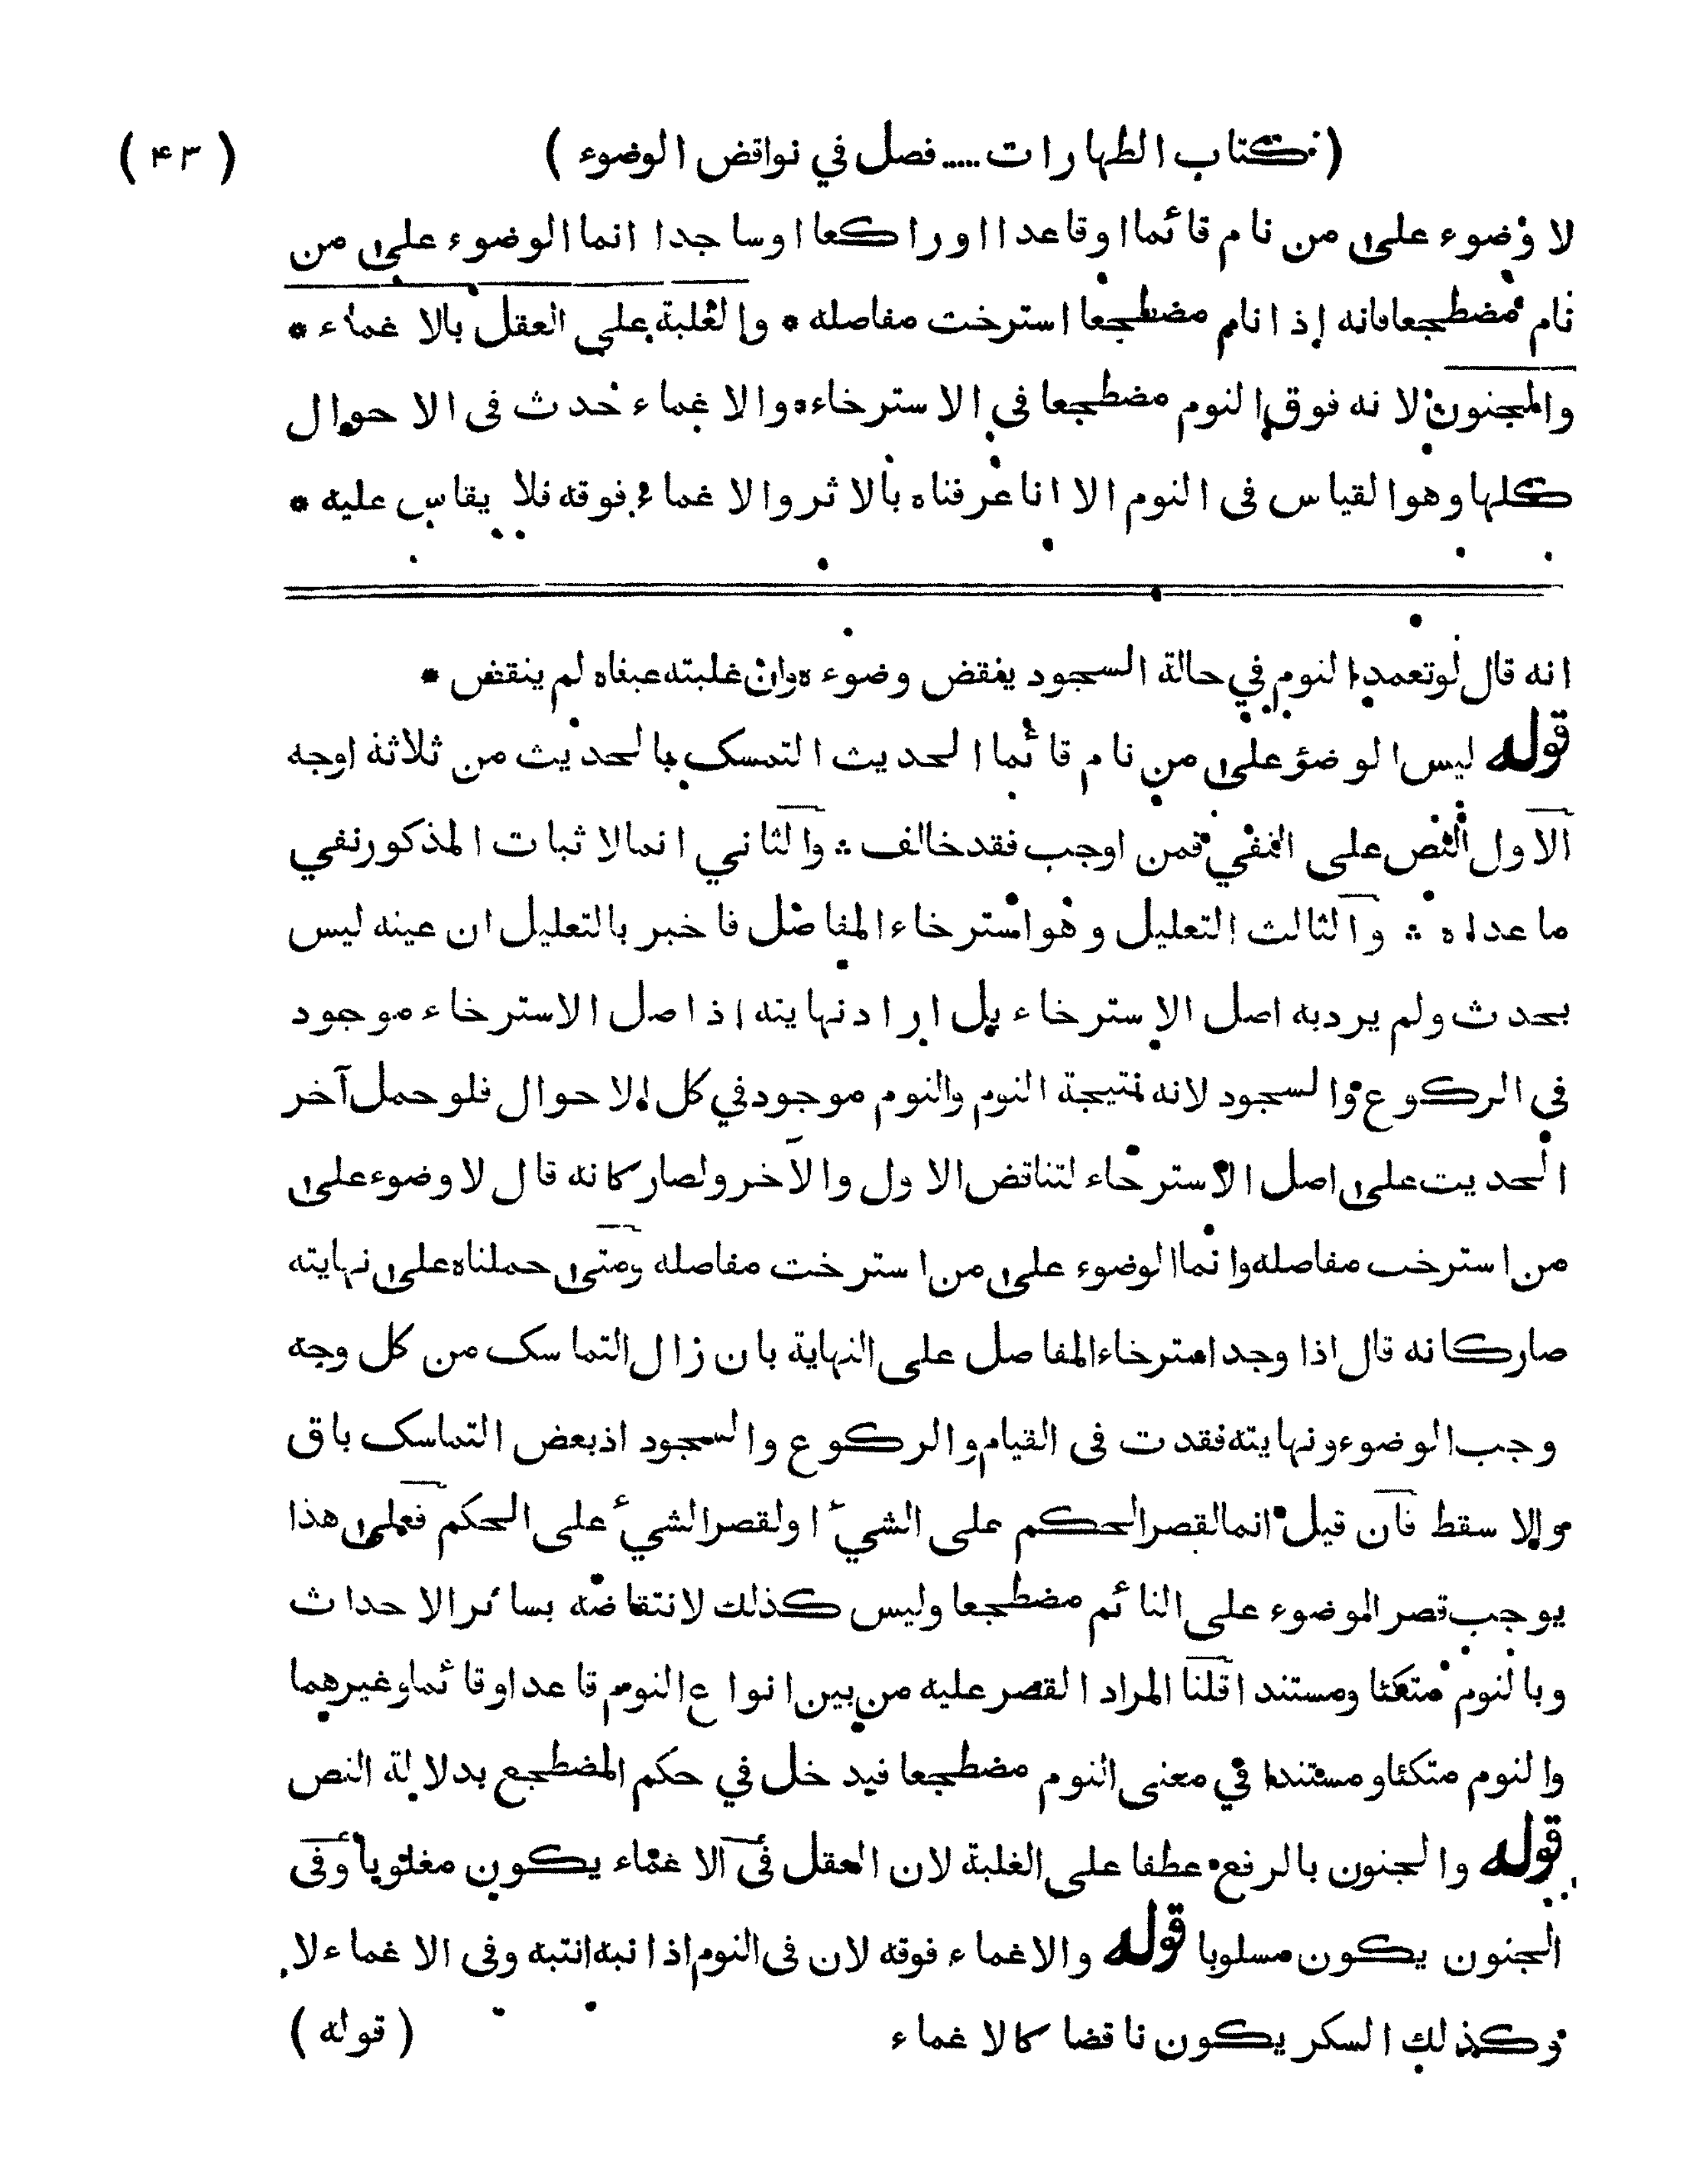 ( كتاب الطهارات ..... فصل في نواقض الوضوء ) ( ۴۳ )
لا وضوء على من نام قائما او قاعدا او راكعا او ساجدا انما الوضوء على من
نام مضطجعا فانه اذا نام مضطجعا استرخت مفاصله * والغلبة على العقل بالاغماء *
والجنون لانه فوق النوم مضطجعا فى الاسترخاء * والاغماء حدث فى الاحوال
كلها وهو القياس فى النوم الا انا عرفناه بالاثر والاغماء فوقه فلا يقاس عليه *
انه قال لو تعمد النوم في حالة السجود ينقض وضوءه وان غلبته عيناه لم ينقض *
قوله ليس الوضؤ على من نام قائما الحديث التمسك بالحديث من ثلاثة اوجه
الاول النص على النفي فمن اوجب فقد خالف ؞ والثاني انما لاثبات المذكور نفي
ما عداه ؞ والثالث التعليل وهو استرخاء المفاصل فاخبر بالتعليل ان عينه ليس
بحدث ولم يرد به اصل الاسترخاء بل اراد نهايته اذ اصل الاسترخاء موجود
فى الركوع والسجود لانه نتيجة النوم والنوم موجود في كل الاحوال فلو حمل آخر
الحديث على اصل الاسترخاء لتناقض الاول والآخر ولصار كانه قال لا وضوء على
من استرخت مفاصله وانما الوضوء على من استرخت مفاصله ومتى حملناه على نهايته
صار كانه قال اذا وجد استرخاء المفاصل على النهاية بان زال التماسك من كل وجه
وجب الوضوء ونهايته فقدت فى القيام والركوع والسجود اذ بعض التماسك باق
والا سقط فان قيل انما لقصر الحكم على الشيء او لقصر الشيء على الحكم فعلى هذا
يوجب قصر الوضوء على النائم مضطجعا وليس كذلك لانتقاضه بسائر الاحداث
وبالنوم متكئا ومستندا قلنا المراد القصر عليه من بين انواع النوم قاعدا وقائما وغيرهما
والنوم متكئا ومستندا في معنى النوم مضطجعا فيدخل في حكم المضطجع بدلالة النص
قوله والجنون بالرفع عطفا على الغلبة لان العقل فى الاغماء يكون مغلوبا وفى
الجنون يكون مسلوبا قوله والاغماء فوقه لان فى النوم اذا نبه انتبه وفى الاغماء لا
وكذلك السكر يكون ناقضا كالاغماء ( قوله )